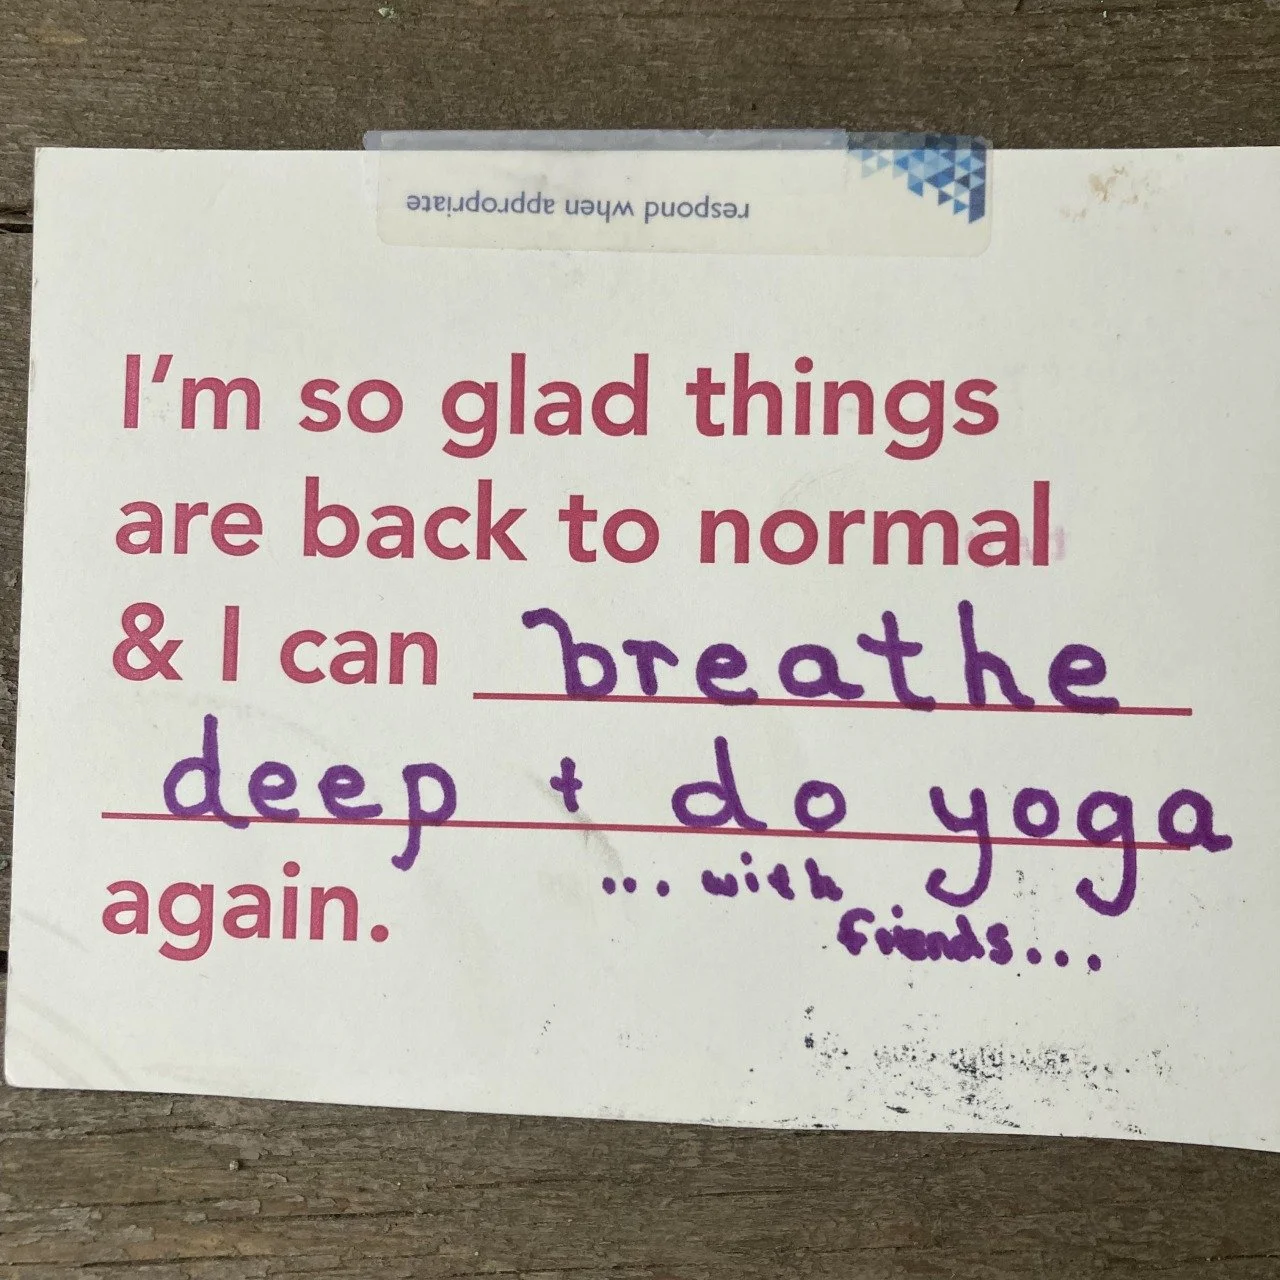 respond when appropriate
I'm so glad things
are back to normal
& I can breathe
deep + do yoga
again. ... with
friends...